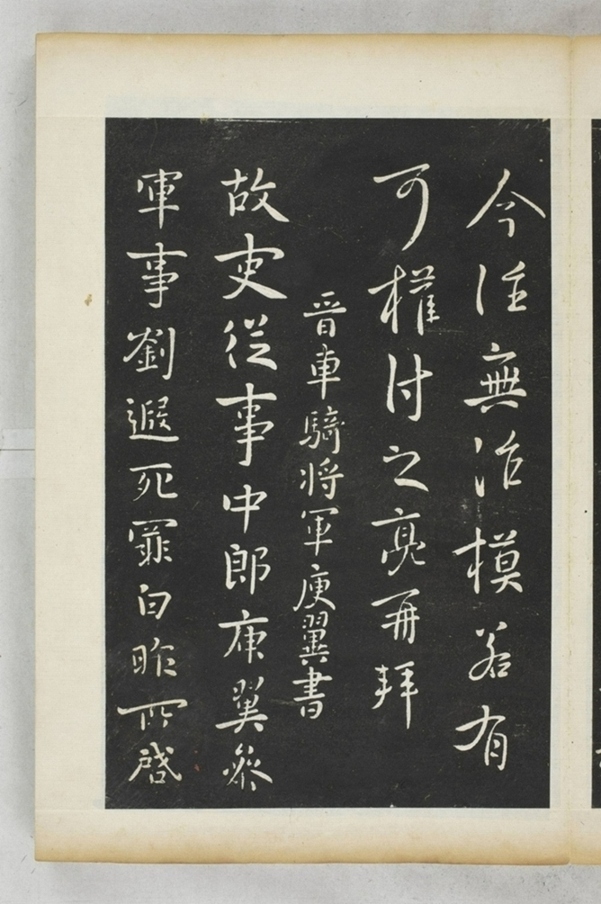 今往無冶模若有
可權付之亮再拜
晉車騎將軍庾翼書
故吏從事中郎庾翼參
軍事劉遐死罪白昨所啓